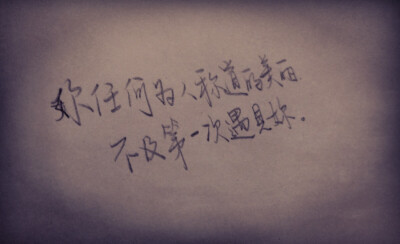 妳任何为人称道的美丽
不及第一次遇見妳.